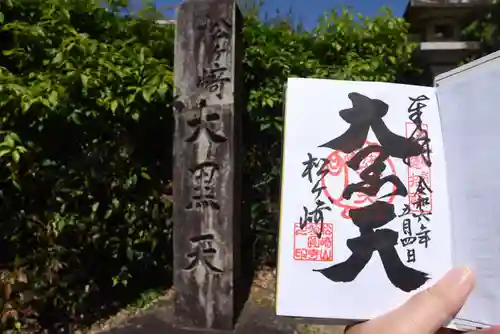 松ヶ崎
大黒天
奉拝
大黒天
松ヶ崎
令和六年
五月四日